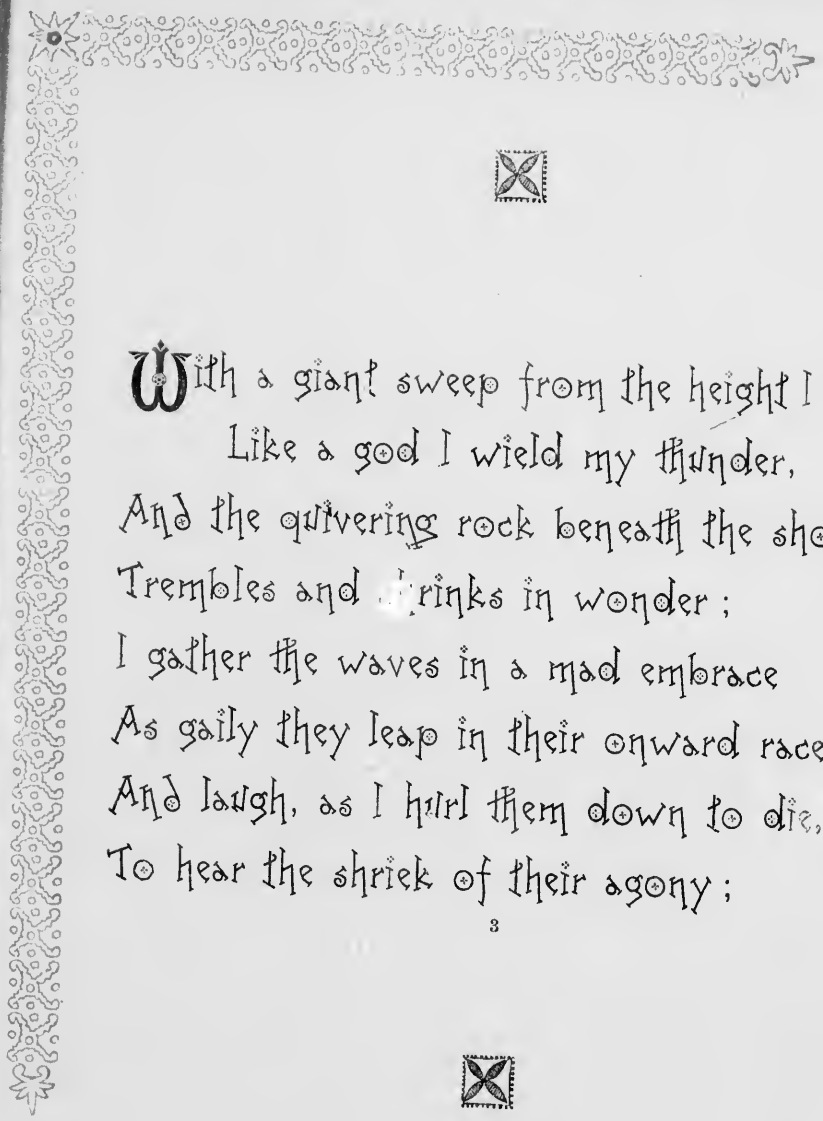 With a giant sweep from the height I
Like a god I wield my thunder,
And the quivering rock beneath the
Trembles and in wonder ;
I gather the waves in a mad embrace
As gaily they leap in their onward race
And laugh, as I hurl them down to die,
To hear the shriek of their agony ;
3